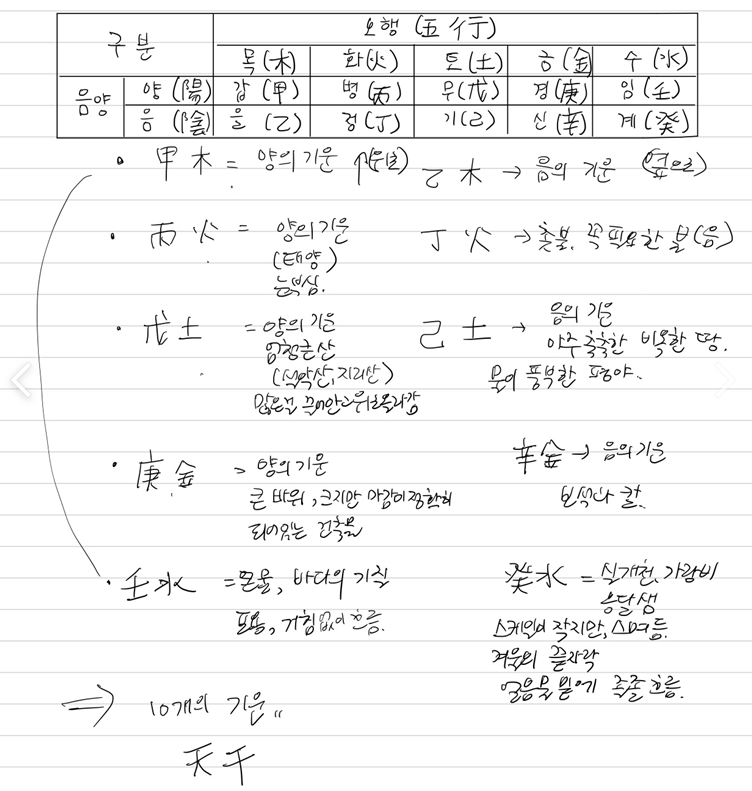 구분 오행 (五行)
목(木) 화(火) 토(土) 금(金) 수(水)
음양 양(陽) 갑(甲) 병(丙) 무(戊) 경(庚) 임(壬)
음(陰) 을(乙) 정(丁) 기(己) 신(辛) 계(癸)
• 甲木 = 양의 기운 ↑(위로) 乙木 → 음의 기운 (옆으로)
• 丙火 = 양의 기운
(태양)
눈부심.
丁火 → 촛불, 꼭 필요한 불(음)
• 戊土 = 양의 기운
엄청큰산
(설악산, 지리산)
많은걸 끌어안고 위로올라감
己土 → 음의 기운
아주 축축한 비옥한 땅.
물이 풍부한 평야.
• 庚金 = 양의 기운
큰 바위, 크지만 마감이 정확히
되어있는 건축물
辛金 → 음의 기운
보석이나 칼.
• 壬水 = 큰물, 바다의 기질
포용, 거침없이 흐름.
癸水 = 실개천, 가랑비
옹달샘
스케일이 작지만, 스며듬.
겨울의 끝자락
얼음물 밑에 졸졸 흐름.
⇒ 10개의 기운,,
天干